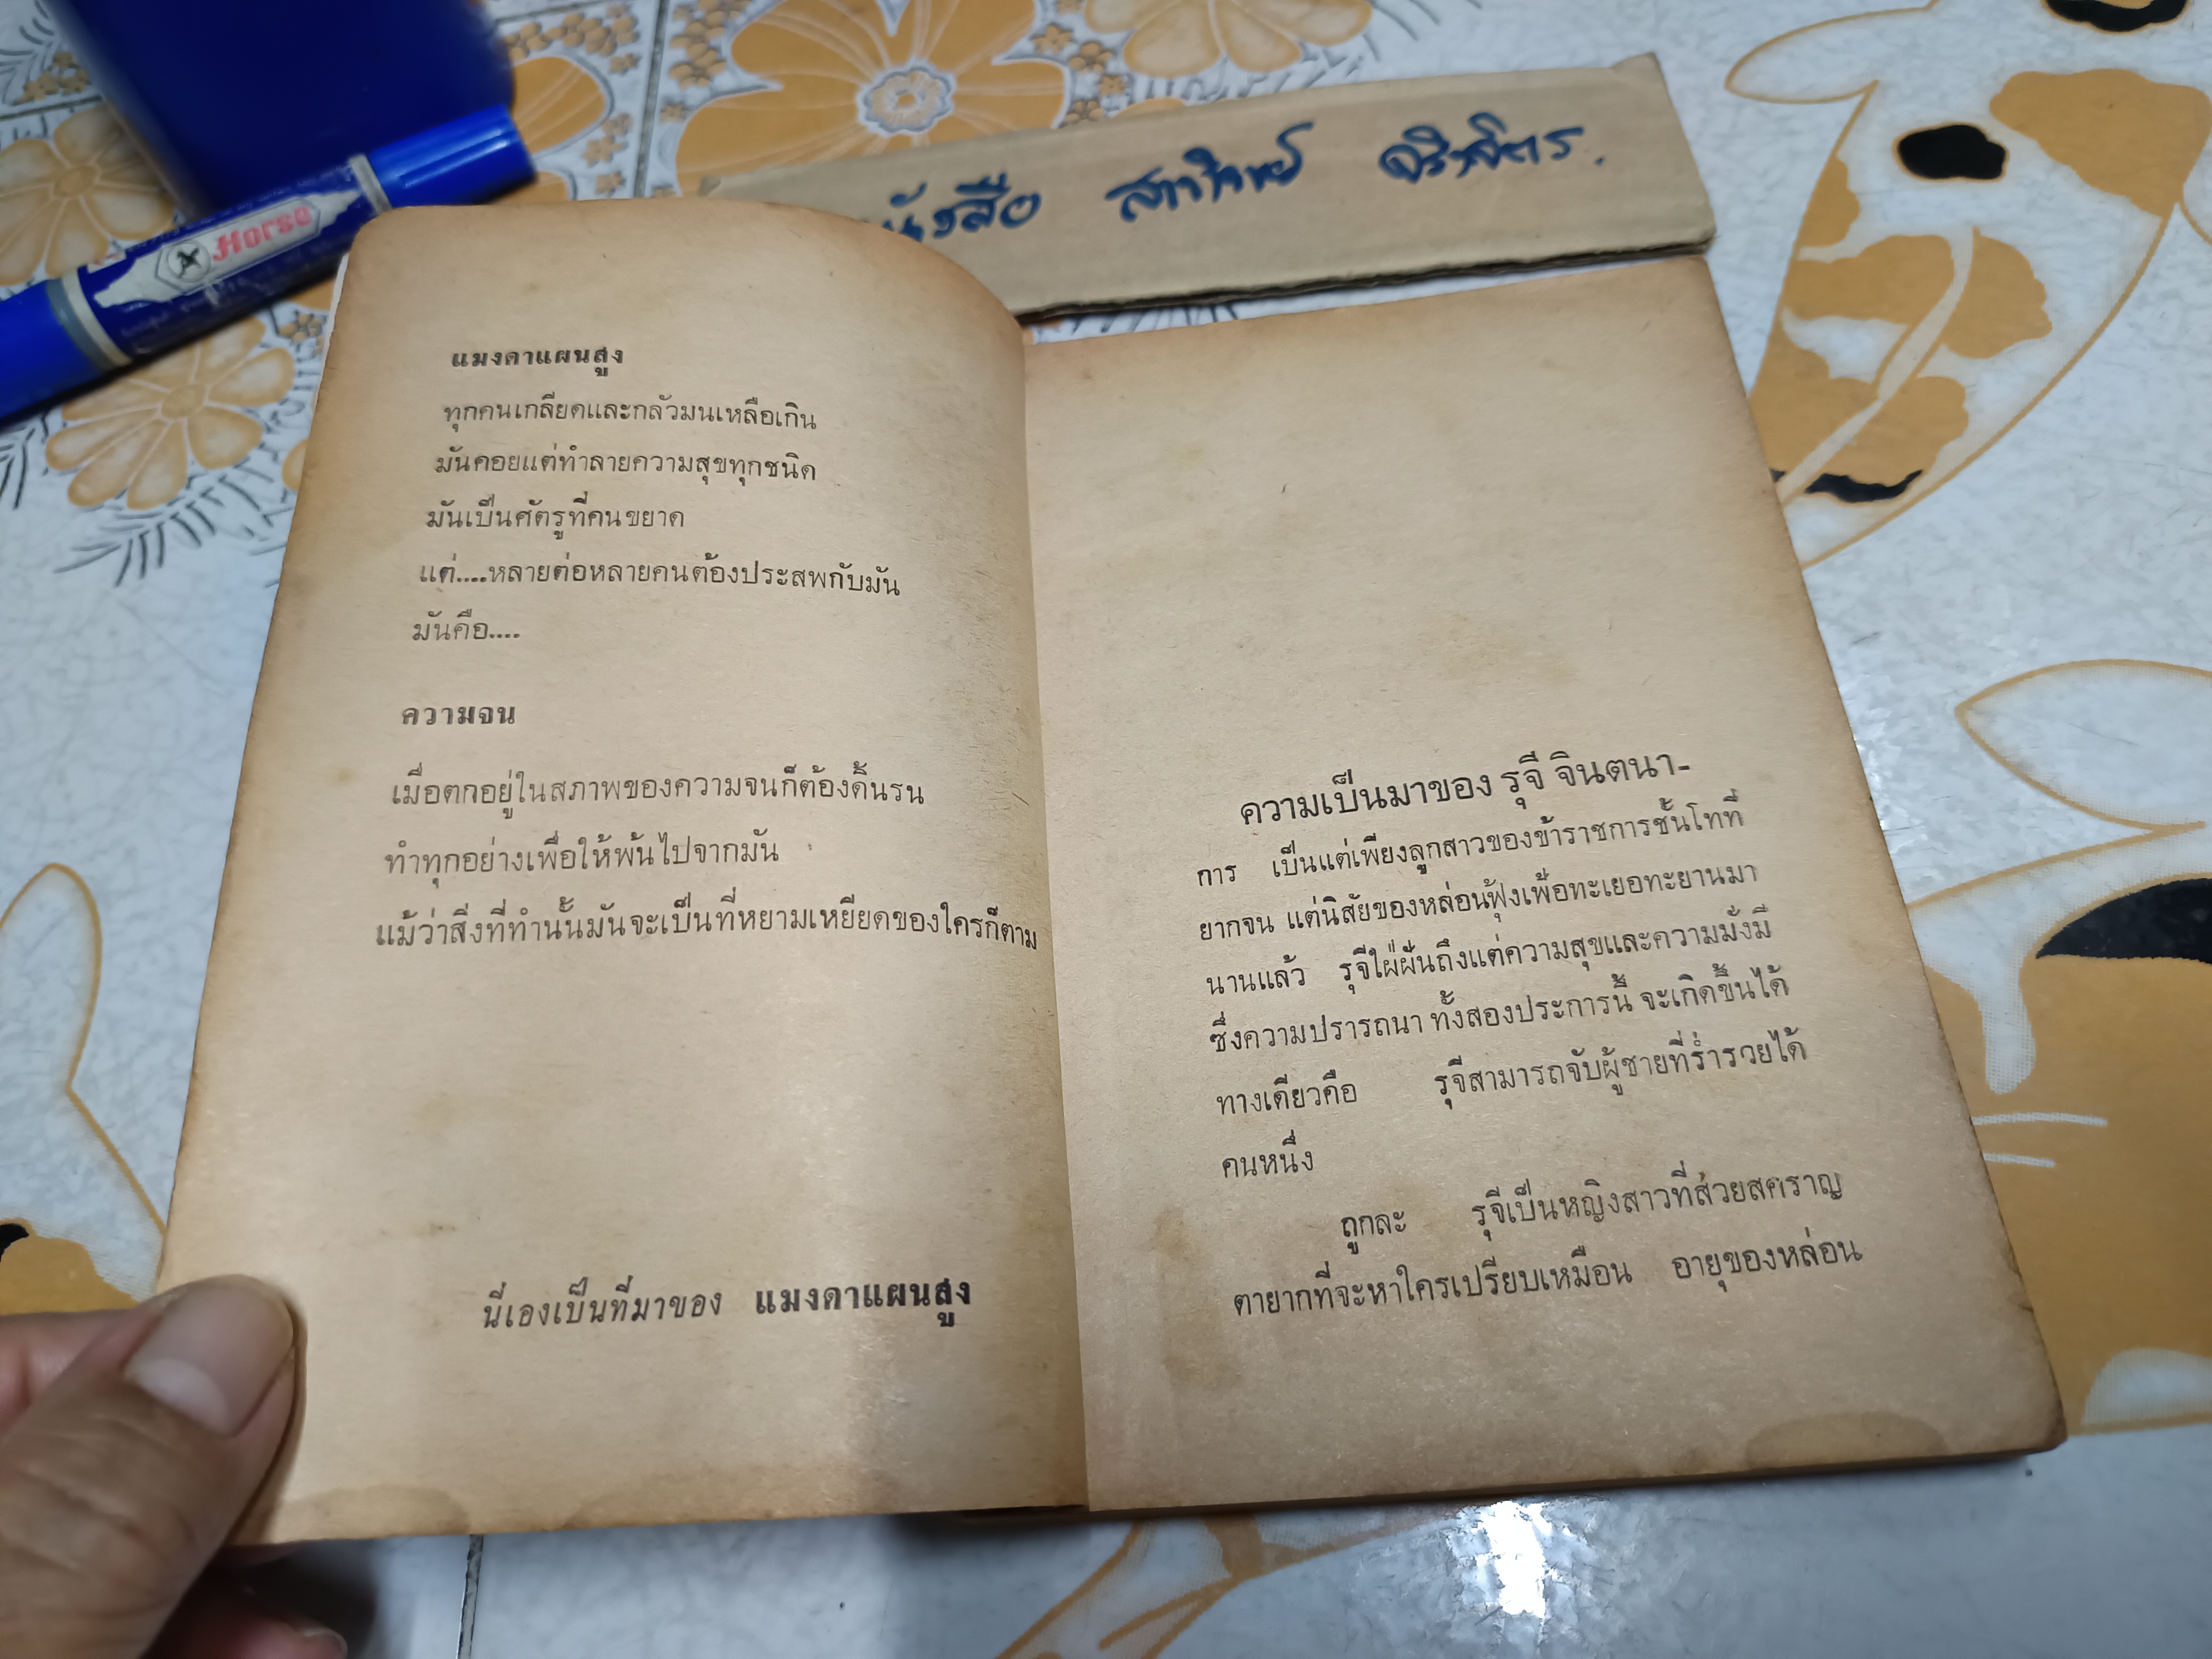 Horse
หนังสือ สาวิตย์ จริงจิตร.
แมงดาแผนสูง
ทุกคนเกลียดและกลัวมนเหลือเกิน
มันคอยแต่ทำลายความสุขทุกชนิด
มันเป็นศัตรูที่คนขยาด
แต่....หลายต่อหลายคนต้องประสพกับมัน
มันคือ....
ความจน
เมื่อตกอยู่ในสภาพของความจนก็ต้องดิ้นรน
ทำทุกอย่างเพื่อให้พ้นไปจากมัน
แม้ว่าสิ่งที่ทำนั้นมันจะเป็นที่หยามเหยียดของใครก็ตาม
นี่เองเป็นที่มาของ แมงดาแผนสูง
ความเป็นมาของ รุจี จินตนา-
การ เป็นแต่เพียงลูกสาวของข้าราชการชั้นโทที่
ยากจน แต่นิสัยของหล่อนฟุ้งเฟ้อทะเยอทะยานมา
นานแล้ว รุจีใฝ่ฝันถึงแต่ความสุขและความมั่งมี
ซึ่งความปรารถนา ทั้งสองประการนี้ จะเกิดขึ้นได้
ทางเดียวคือ รุจีสามารถจับผู้ชายที่ร่ำรวยได้
คนหนึ่ง
ถูกละ รุจีเป็นหญิงสาวที่สวยสคราญ
ตายากที่จะหาใครเปรียบเหมือน อายุของหล่อน